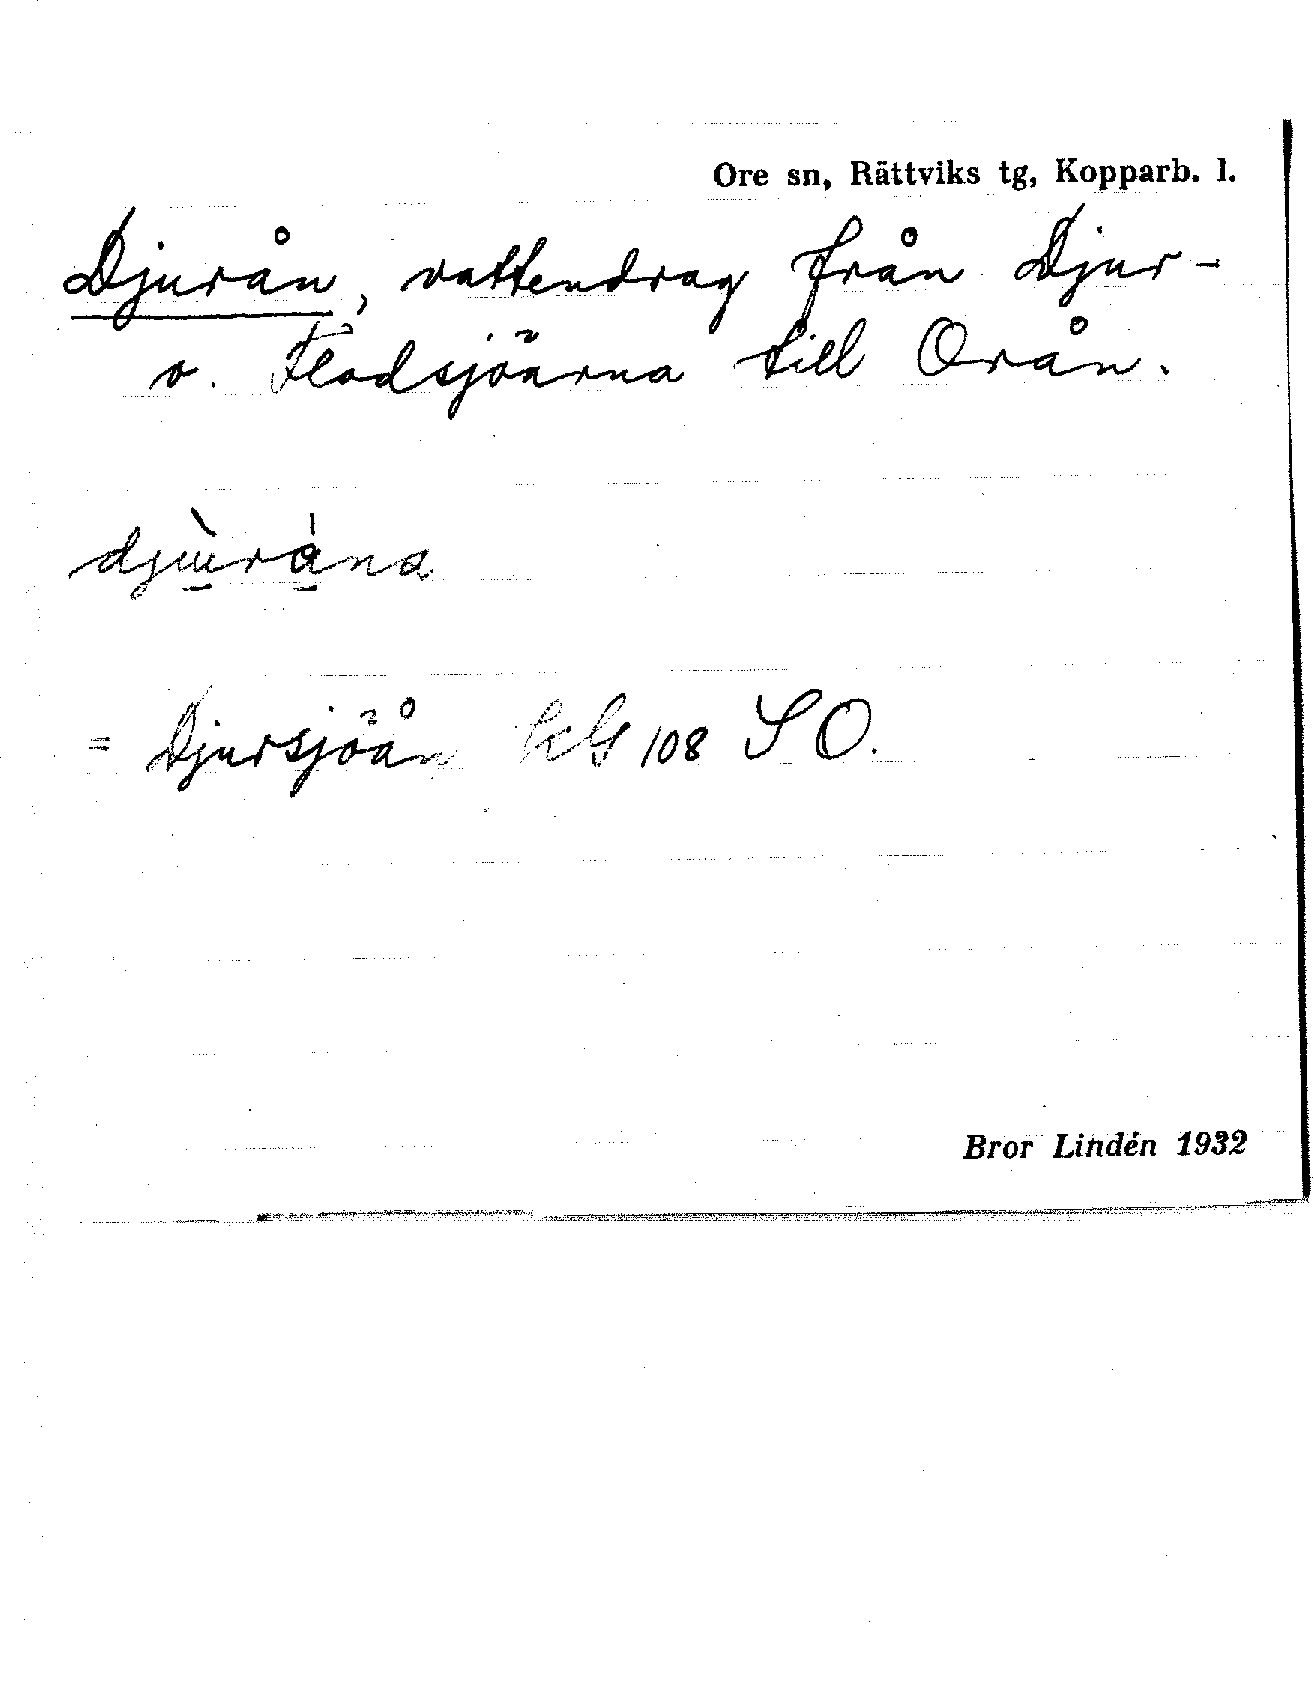 Ore sn, Rättviks tg, Kopparb. l.
Djurån, vattendrag från Djur-
o. Flodsjöarna till Orån.
= Djursjöån kbl 108 SO.
Bror Lindén 1932